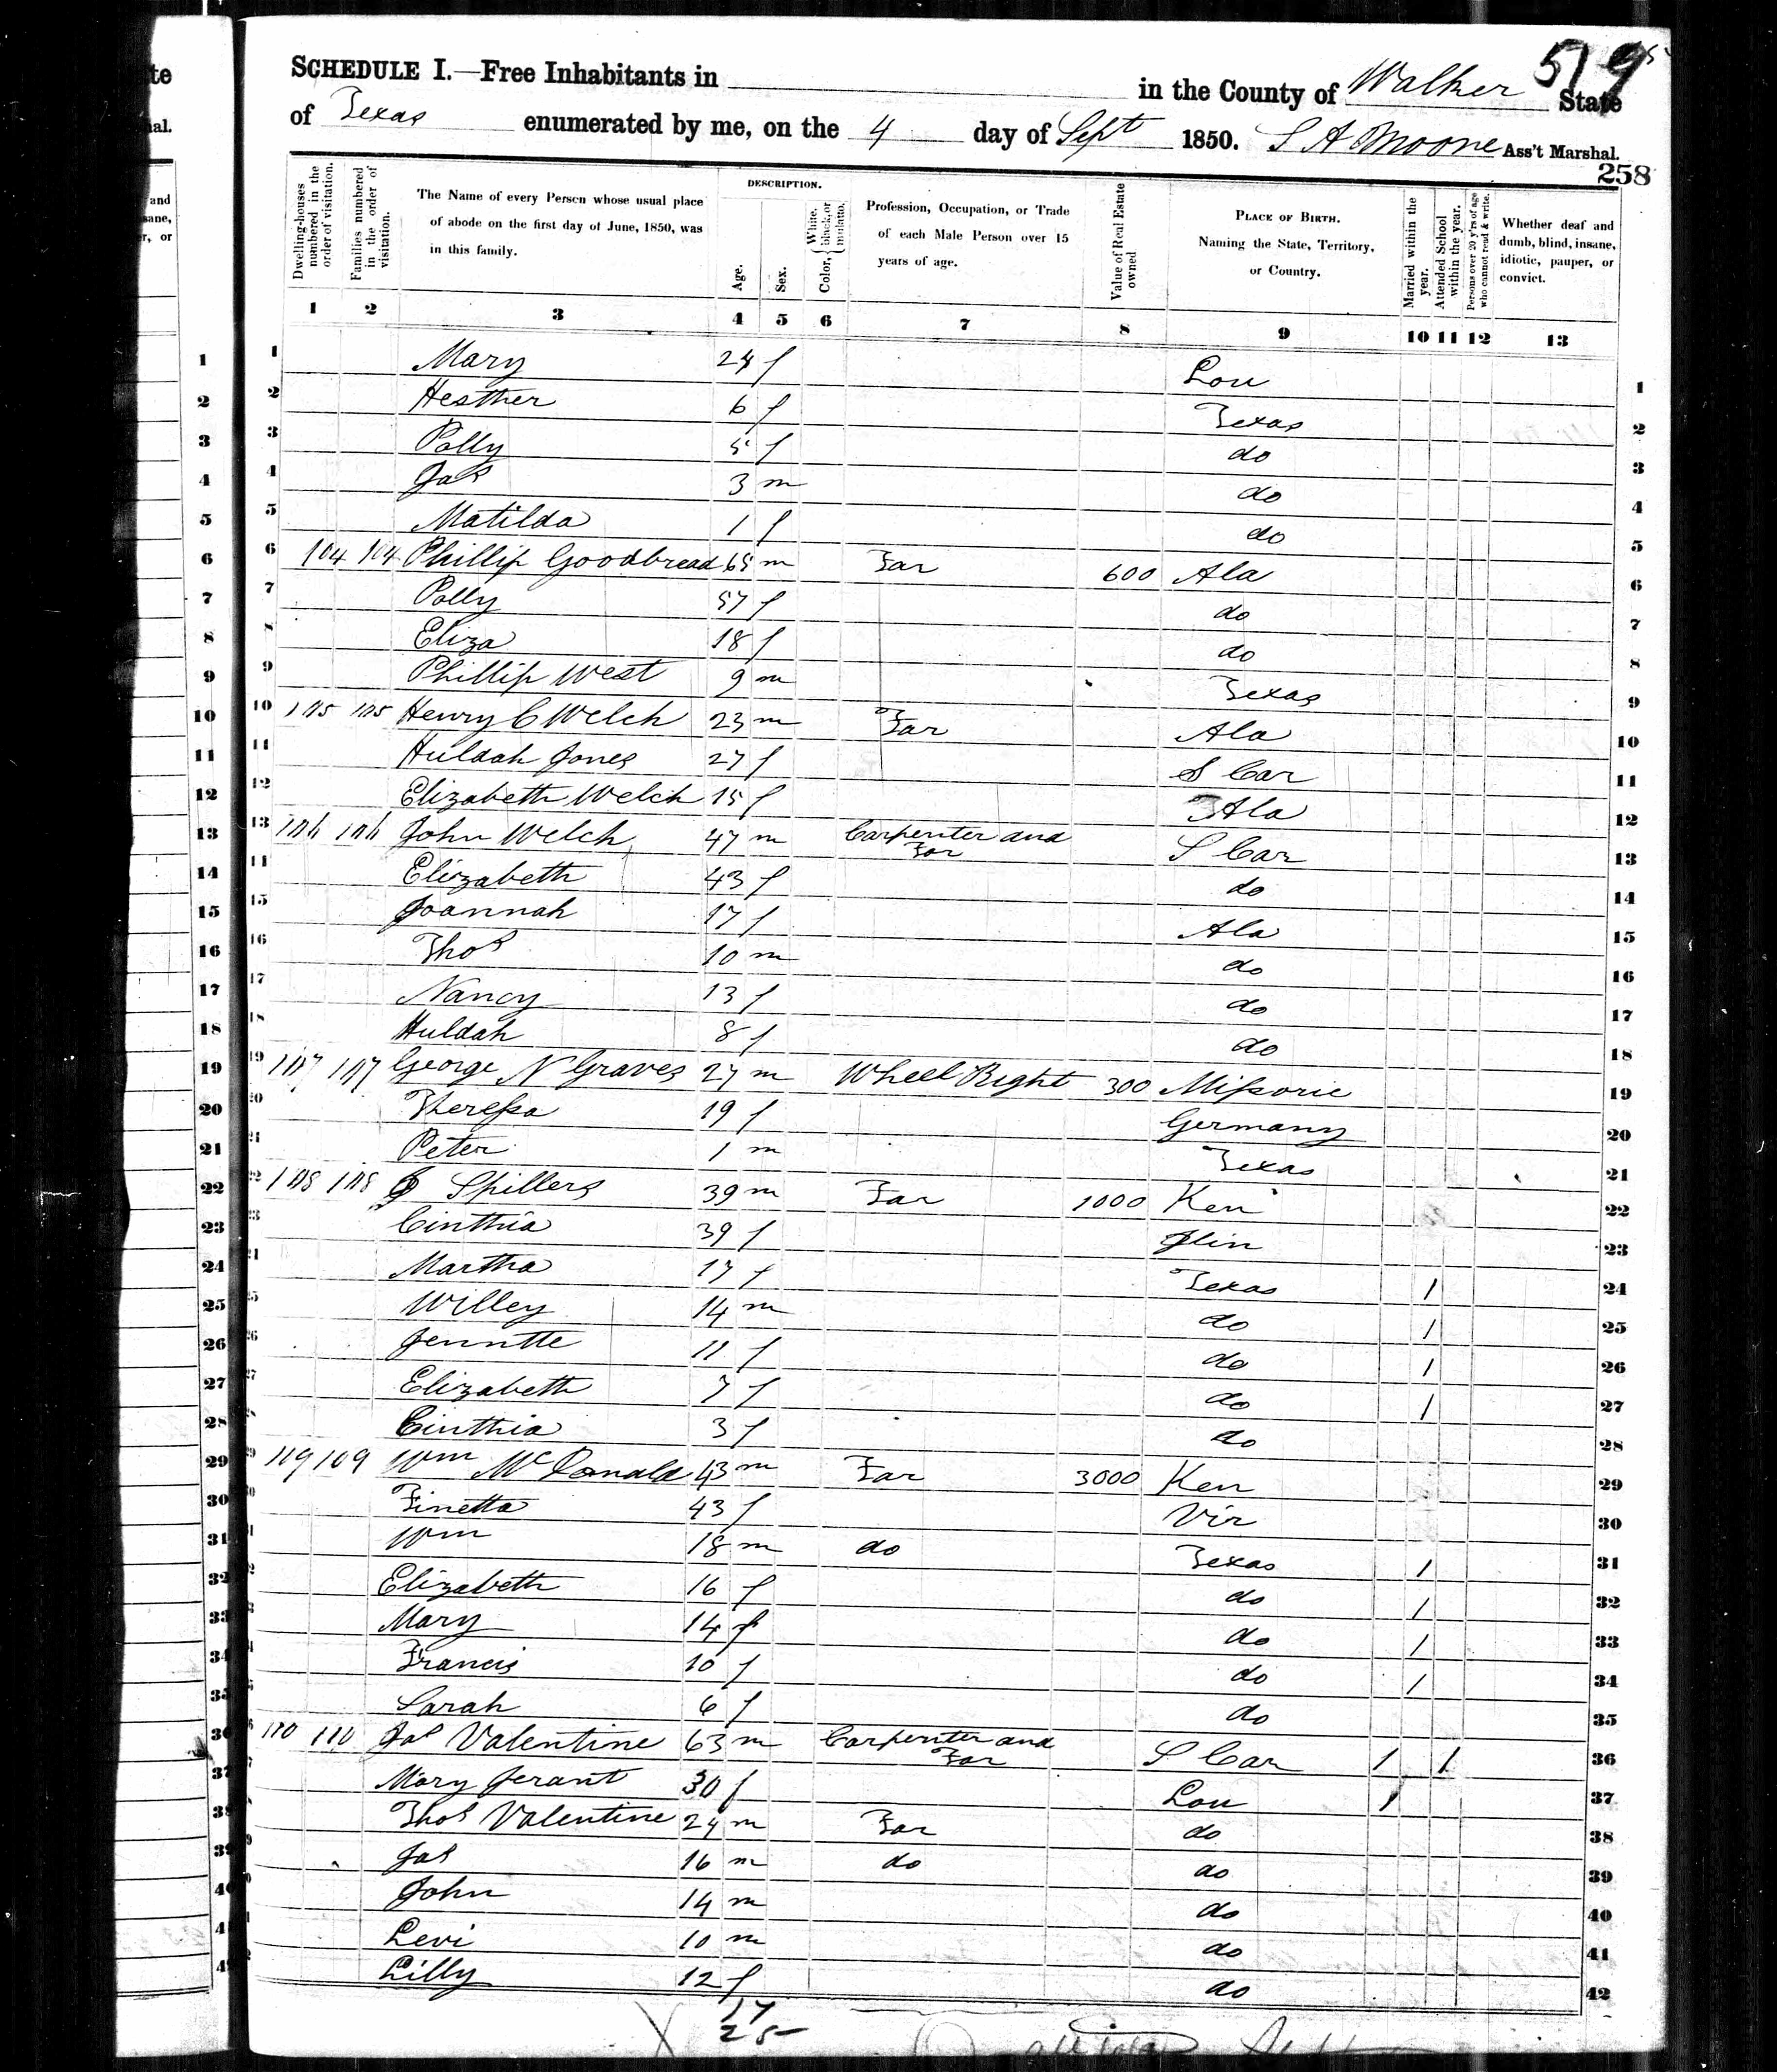 519
SCHEDULE I.—Free Inhabitants in in the County of Walker State
of Texas enumerated by me, on the 4 day of Sept 1850. S A Moore Ass't Marshal.
258
Dwelling-houses numbered in the order of visitation.
Families numbered in the order of visitation.
The Name of every Person whose usual place of abode on the first day of June, 1850, was in this family.
DESCRIPTION.
Age.
Sex.
Color, { White, black, or mulatto.
Profession, Occupation, or Trade of each Male Person over 15 years of age.
Value of Real Estate owned
PLACE OF BIRTH. Naming the State, Territory, or Country.
Married within the year.
Attended School within the year.
Persons over 20 y'rs of age who cannot read & write.
Whether deaf and dumb, blind, insane, idiotic, pauper, or convict.
1 2 3 4 5 6 7 8 9 10 11 12 13
1 Mary 24 f Lou 1
2 Hesther 6 f Texas 2
3 Polly 5 f do 3
4 Jas 3 m do 4
5 Matilda 1 f do 5
6 104 104 Phillip Goodbread 65 m Far 600 Ala 6
7 Polly 57 f do 7
8 Eliza 18 f do 8
9 Phillip West 9 m Texas 9
10 105 105 Henry C Welch 23 m Far Ala 10
11 Huldah Jones 27 f S Car 11
12 Elizabeth Welch 15 f Ala 12
13 106 106 John Welch 47 m Carpenter and Far S Car 13
14 Elizabeth 43 f do 14
15 Joannah 17 f Ala 15
16 Thos 10 m do 16
17 Nancy 13 f do 17
18 Huldah 8 f do 18
19 107 107 George N Graves 27 m Wheel Right 300 Missorie 19
20 Theressa 19 f Germany 20
21 Peter 1 m Texas 21
22 108 108 Spillers 39 m Far 1000 Ken 22
23 Cinthia 39 f Ilin 23
24 Martha 17 f Texas 1 24
25 Willey 14 m do 1 25
26 Jenntte 11 f do 1 26
27 Elizabeth 7 f do 1 27
28 Cinthia 3 f do 28
29 109 109 Wm McDonald 43 m Far 3000 Ken 29
30 Finetta 43 f Vir 30
31 Wm 18 m do Texas 1 31
32 Elizabeth 16 f do 1 32
33 Mary 14 f do 1 33
34 Francis 10 f do 1 34
35 Sarah 6 f do 35
36 110 110 Jas Valentine 63 m Carpenter and Far S Car 1 1 36
37 Mary Jerant 30 f Lou 1 37
38 Thos Valentine 24 m Far do 38
39 Jas 16 m do do 39
40 John 14 m do 40
41 Levi 10 m do 41
42 Lilly 12 f do 42
17
25